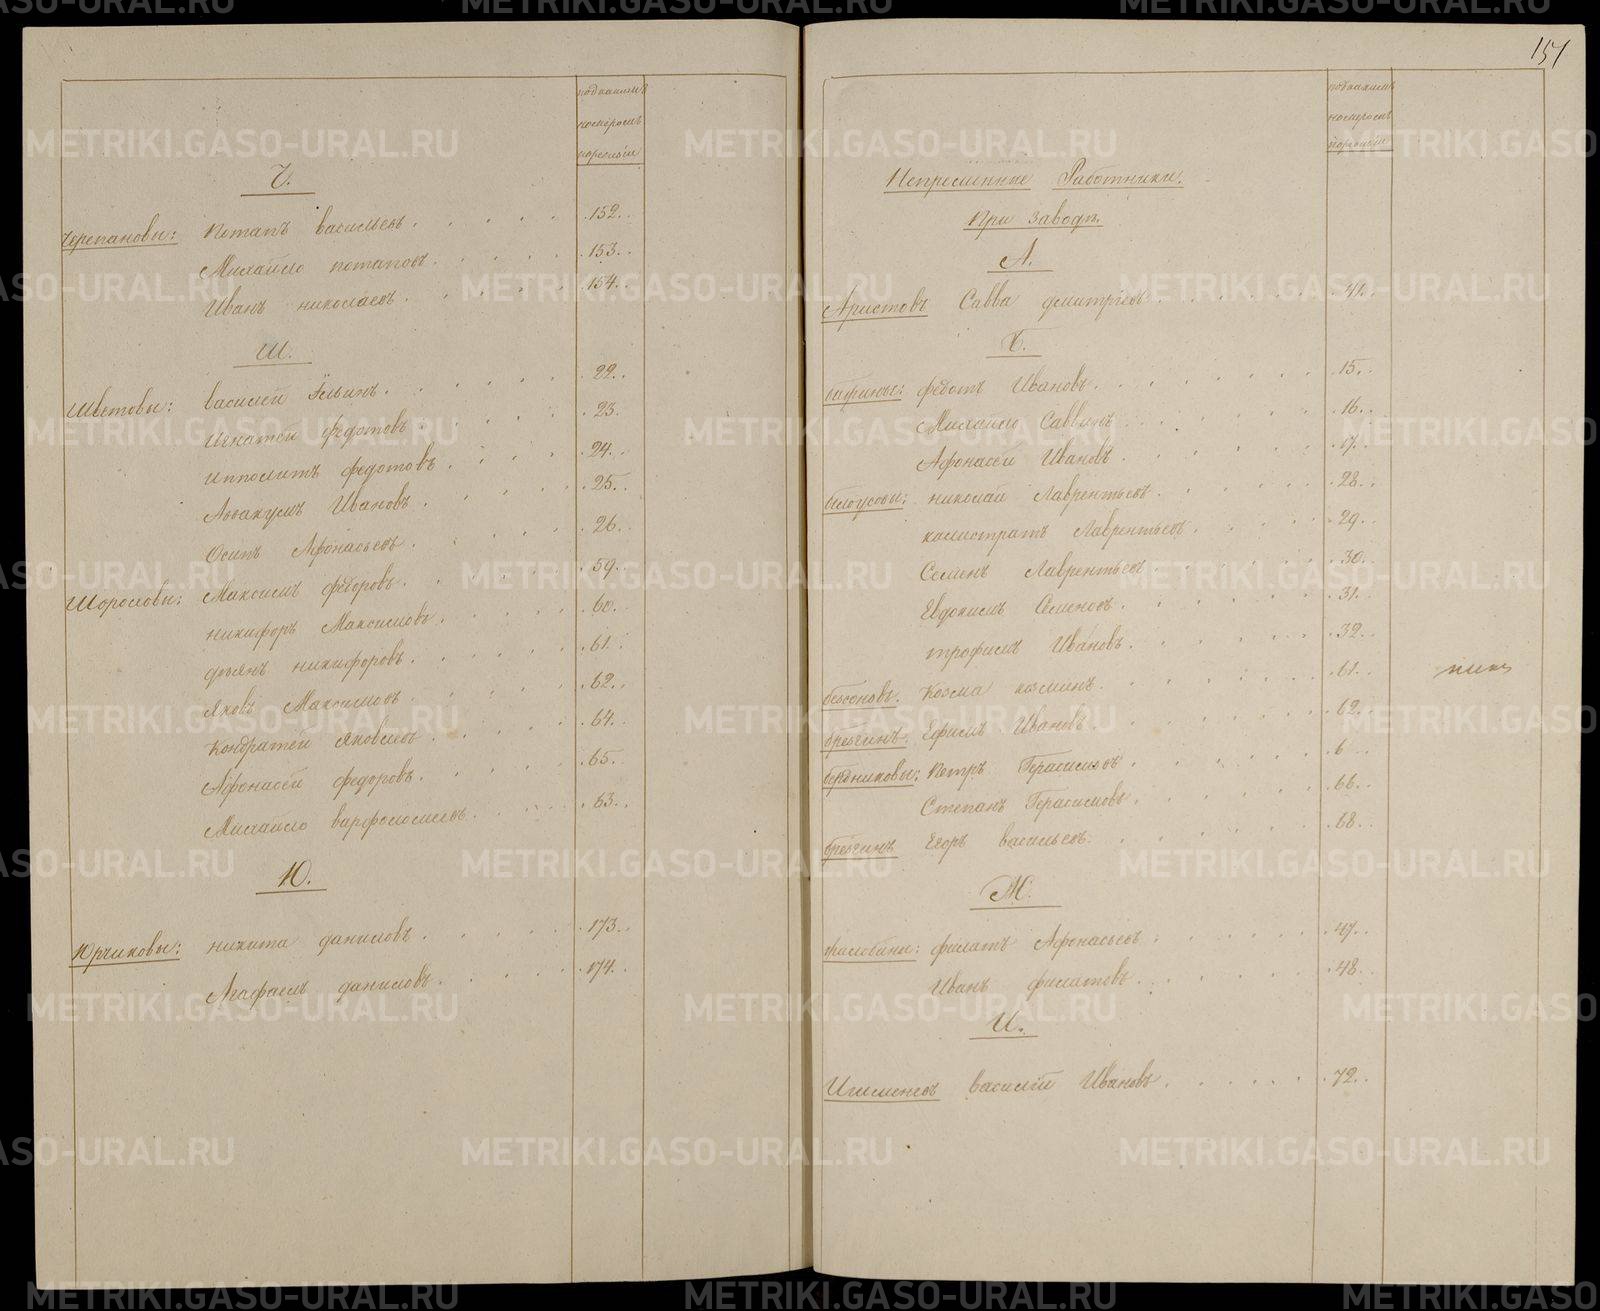 подкакимъ
номеромъ
поревизіи
Ч.
Черепановы: Потапъ васильевъ . . . . . 152. .
Михайло потаповъ . . . . . 153. .
Иванъ николаевъ . . . . . 154. .
Ш.
Шветовы: василей Ильинъ . . . . . 22. .
Игнатей федотовъ . . . . 23.
ипполитъ федотовъ . . . . 24. .
Аввакумъ Ивановъ . . . . 25. .
Осипъ Афонасьевъ . . . . 26. .
Шороховы: Максимъ федоровъ . . . . . 59. .
никифоръ Максимовъ . . . . 60. .
демянъ никифоровъ . . . . . 61. .
Яковъ Максимовъ . . . . . 62. .
Кондратей Яковлевъ . . . . 64. .
Афонасей федоровъ . . . . . 65. .
Михайло варфоломеевъ . . . . 63. .
Ю.
Юрчиковы: никита даниловъ . . . . . 173. .
Агафаилъ даниловъ . . . . . 174. .
151
подкакимъ
номеромъ
поревизіи
Непременные Работники.
При Заводѣ.
А.
Аристовъ Савва дмитріевъ . . . . . 41. .
Б.
федотъ Ивановъ . . . . . 15. .
Михайло Саввинъ . . . 16. .
Афонасей Ивановъ . . . . . 17. .
белоусовы: николай Лаврентьевъ . . . . . 28. .
калистратъ Лаврентьевъ . . . . 29. .
Семенъ Лаврентьевъ . . . . . 30. .
Евдокимъ Семеновъ . . . . . 31. .
трофимъ Ивановъ . . . . . 32. .
безсоновъ. Козма козминъ . . . . . 61. .
брезгинъ. Ефимъ Ивановъ . . . . . 62. .
бердниковы: Петръ Герасимовъ . . . . . 6
Степанъ Герасимовъ . . . . . 66. .
брезгинъ Егоръ васильевъ . . . . . 68. .
Ж.
филатъ Афонасьевъ . . . . . 47. .
Иванъ филатовъ . . . . . 48. .
И.
Игуменовъ василій Ивановъ . . . . . 72. .
METRIKI.GASO-URAL.RU